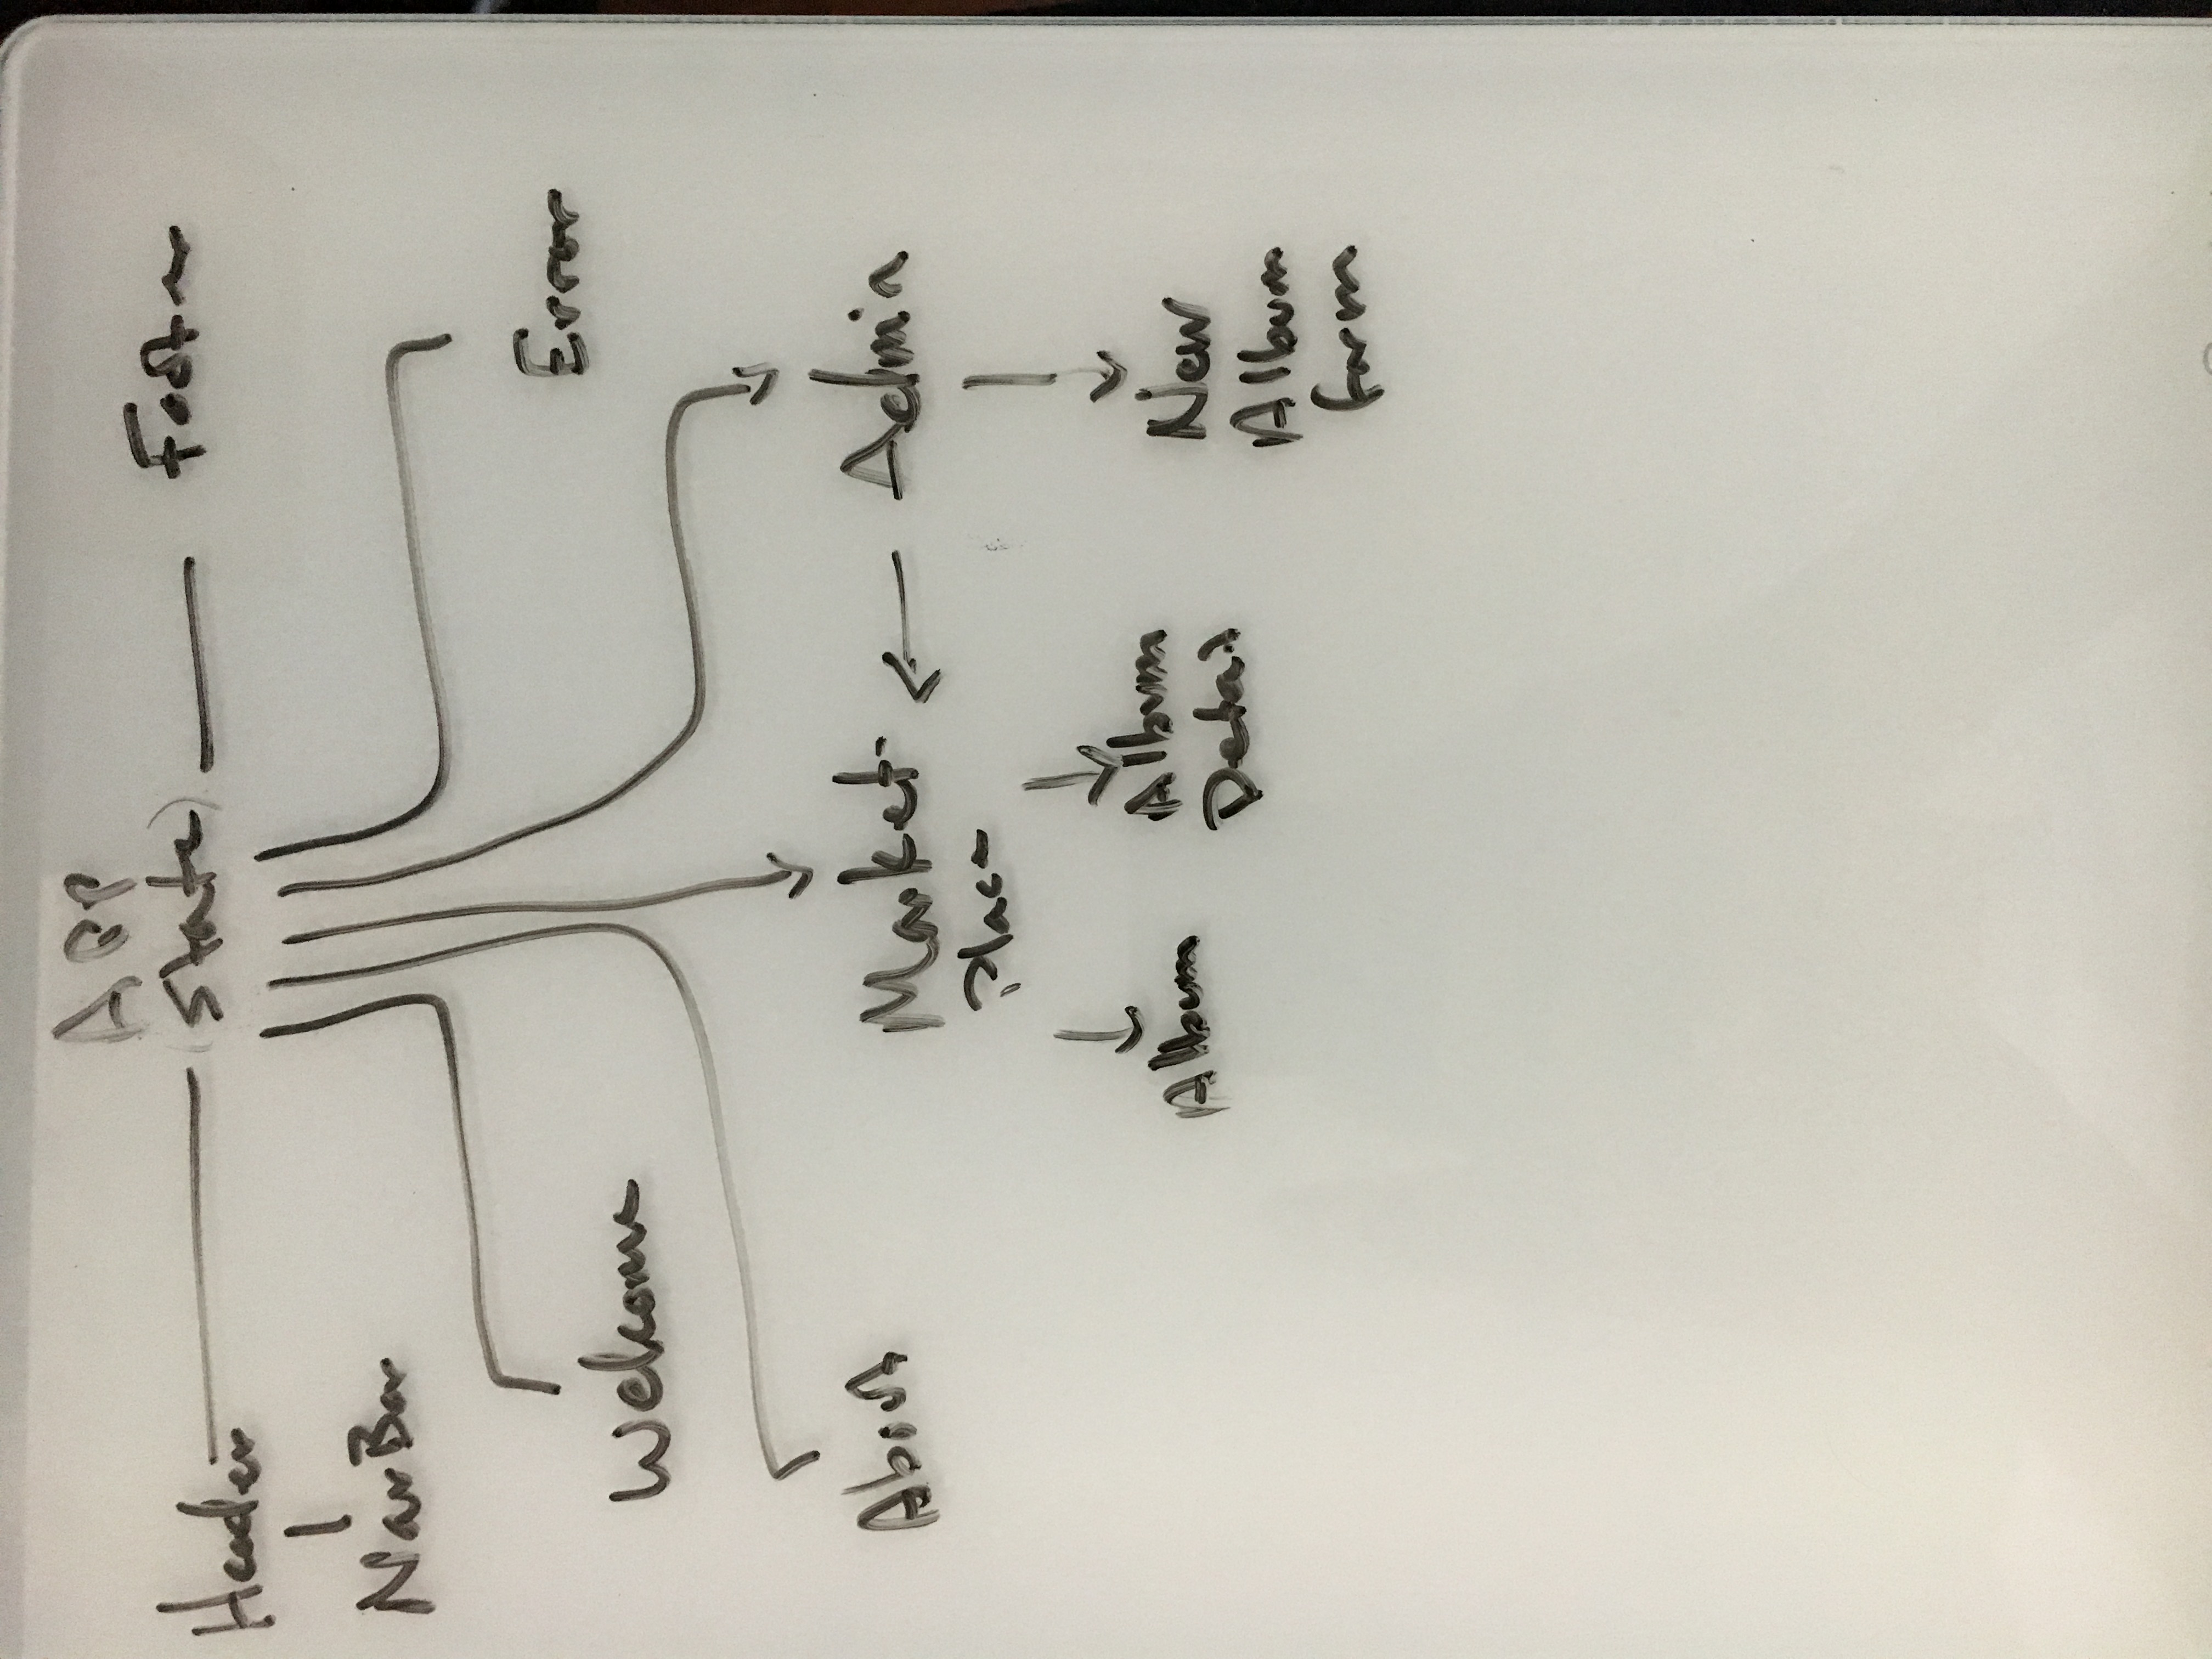 App
(State)
Header
Footer
NavBar
Error
Welcome
About
Market-
Place
Admin
Album
Album
Detail
New
Album
form